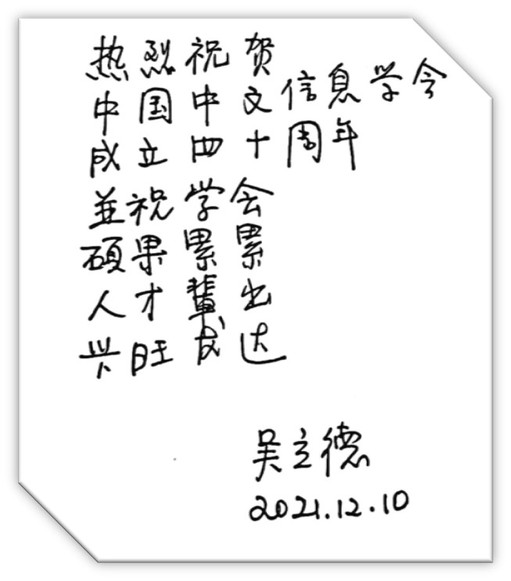 热烈祝贺
中国中文信息学会
成立四十周年
並祝学会
硕果累累
人才輩出
兴旺发达
吴立德
2021.12.10